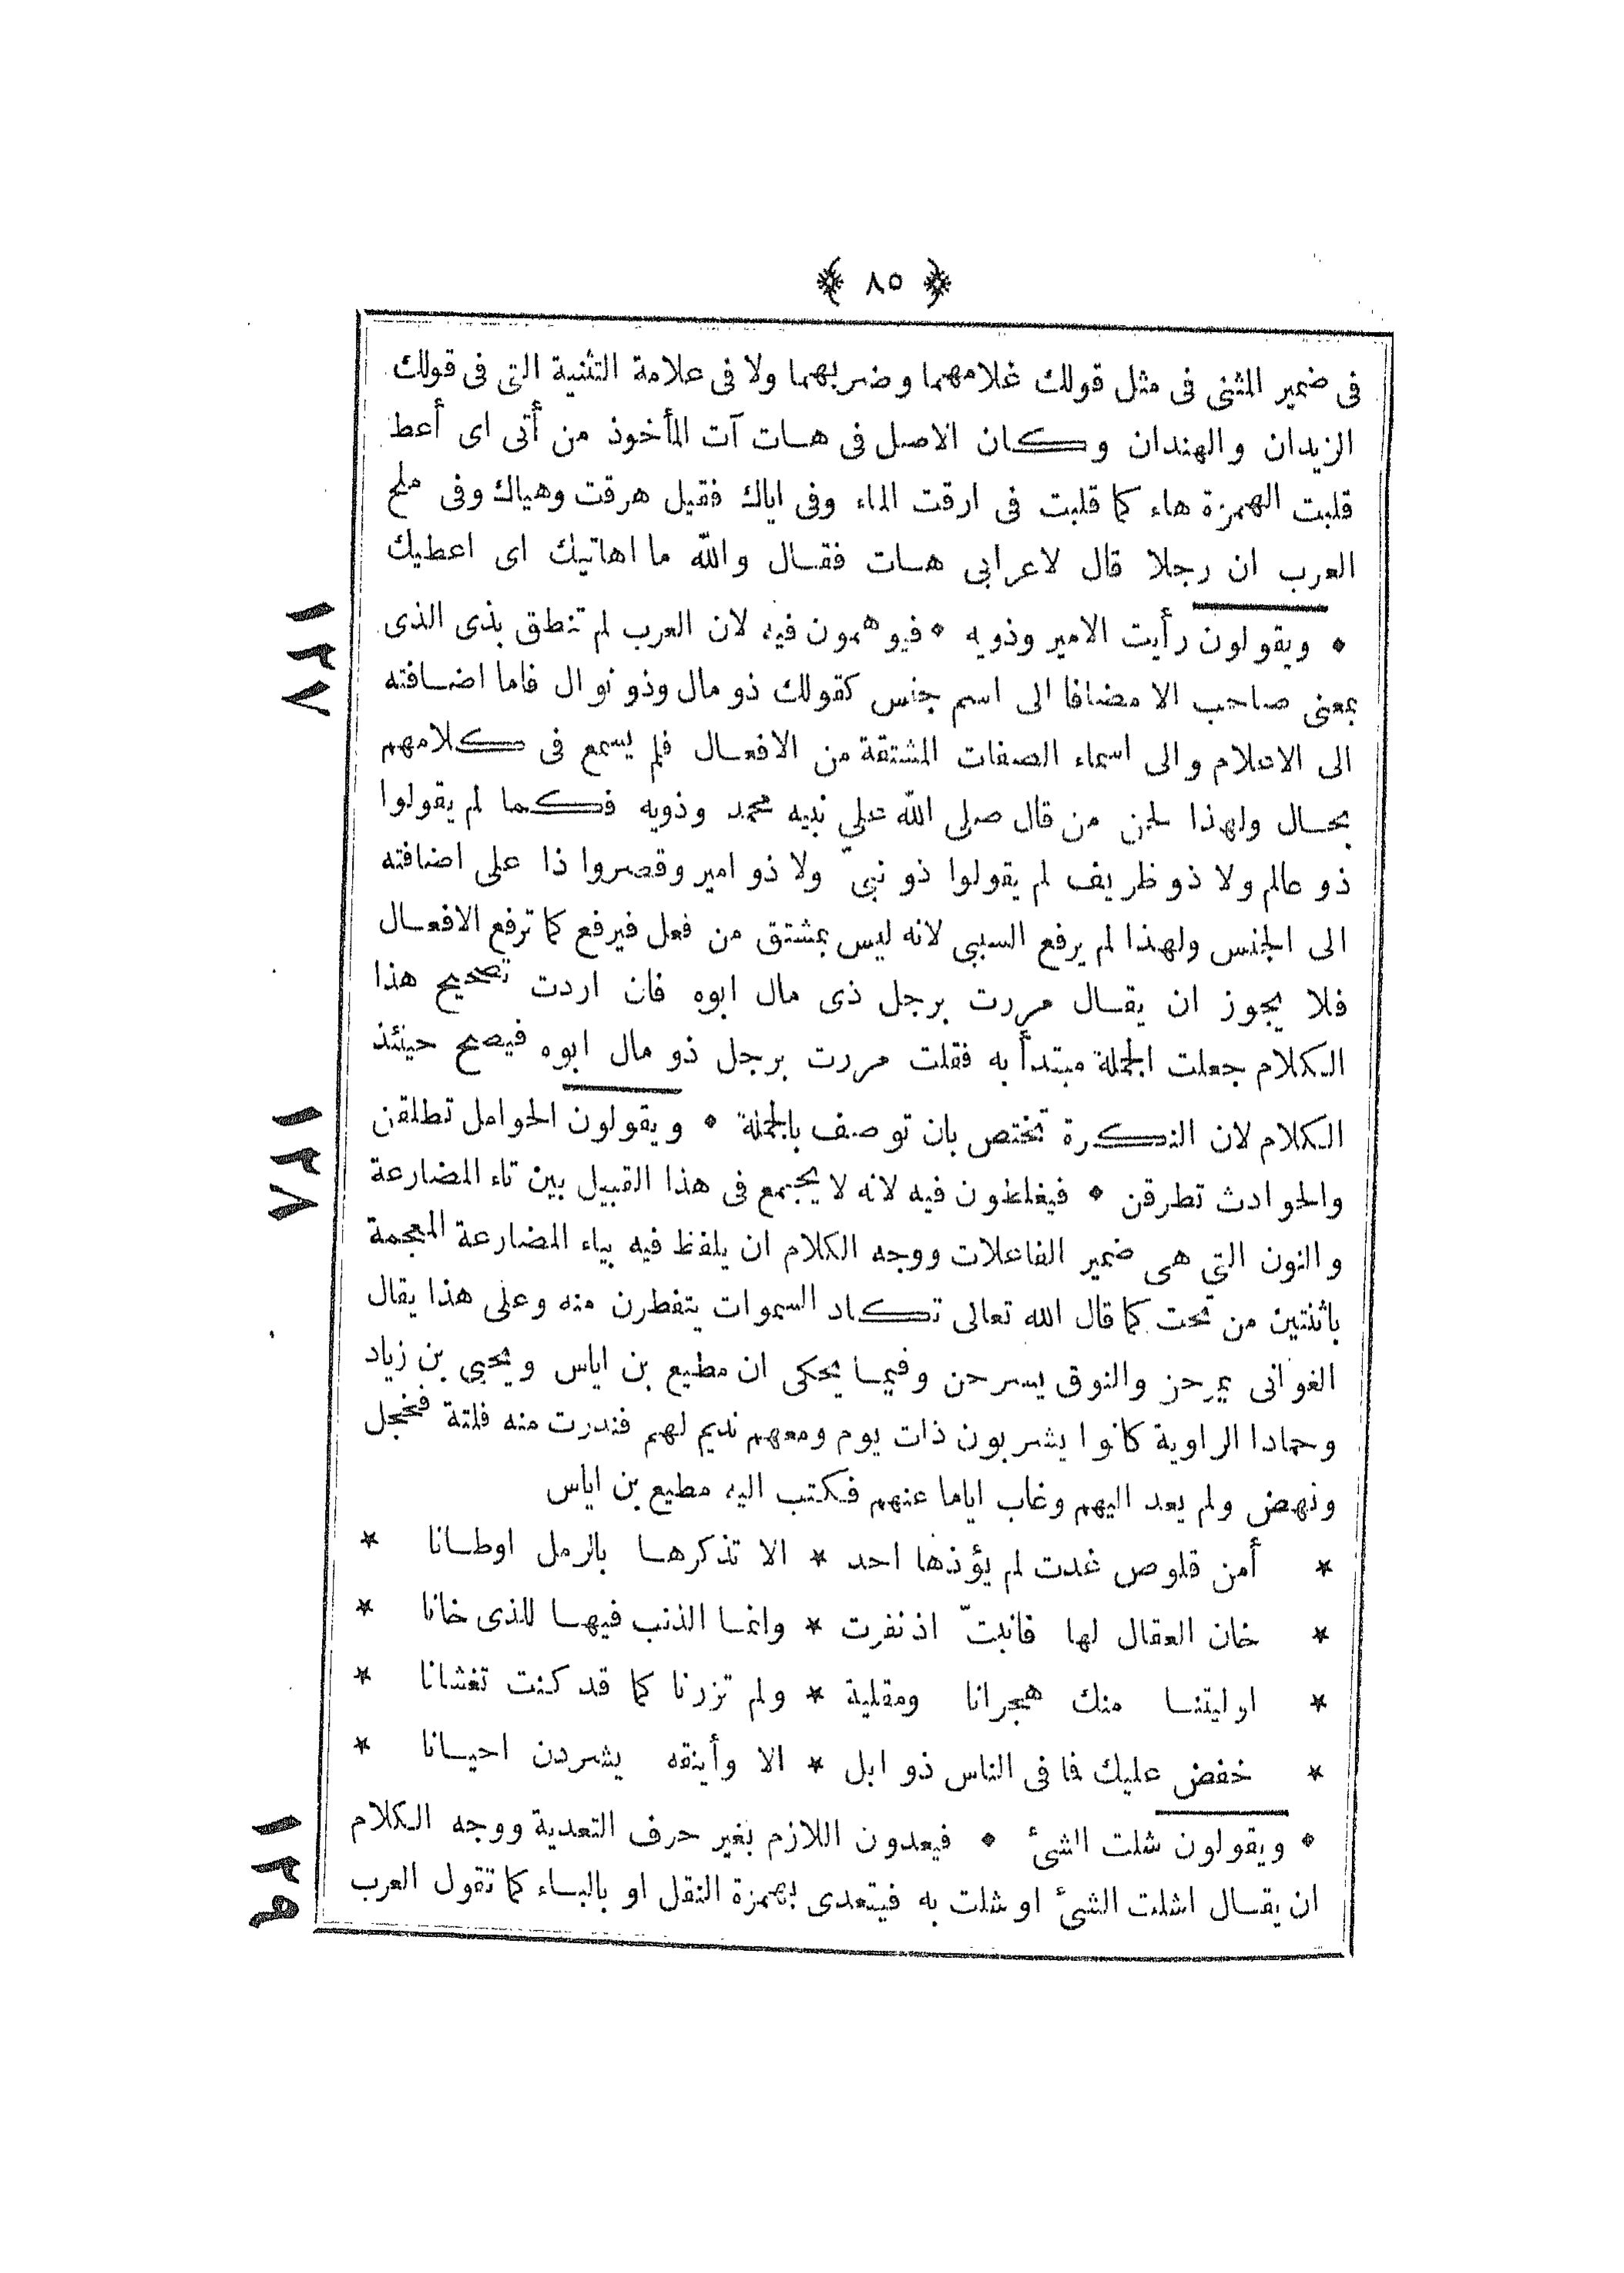 ﴿ ٨٥ ﴾
فى ضمير المثنى فى مثل قولك غلامهما وضربهما ولا فى علامة التثنية التى فى قولك
الزيدان والهندان وكان الاصل فى هات آت المأخوذ من أتى اى أعط
قلبت الهمزة هاء كما قلبت فى ارقت الماء وفى اياك فقيل هرقت وهياك وفى ملح
العرب ان رجلا قال لاعرابى هات فقال والله ما اهاتيك اى اعطيك
١٢٧
* ويقولون رأيت الامير وذويه * فيوهمون فيه لان العرب لم تنطق بذى الذى
بمعنى صاحب الا مضافا الى اسم جنس كقولك ذو مال وذو نوال فاما اضافته
الى الاعلام والى اسماء الصفات المشتقة من الافعال فلم يسمع فى كلامهم
بحال ولهذا لحن من قال صلى الله على نبيه محمد وذويه فكما لم يقولوا
ذو عالم ولا ذو ظريف لم يقولوا ذو نبىّ ولا ذو امير وقصروا ذا على اضافته
الى الجنس ولهذا لم يرفع السببى لانه ليس بمشتق من فعل فيرفع كما ترفع الافعال
فلا يجوز ان يقال مررت برجل ذى مال ابوه فان اردت تصحيح هذا
الكلام جعلت الجملة مبتدأ به فقلت مررت برجل ذو مال ابوه فيصح حينئذ
١٢٨
الكلام لان النكرة تختص بان توصف بالجملة * ويقولون الحوامل تطلقن
والحوادث تطرقن * فيغلطون فيه لانه لا يجمع فى هذا القبيل بين تاء المضارعة
والنون التى هى ضمير الفاعلات ووجه الكلام ان يلفظ فيه بياء المضارعة المعجمة
باثنتين من تحت كما قال الله تعالى تكاد السموات يتفطرن منه وعلى هذا يقال
الغوانى يمرحن والنوق يسرحن وفيما يحكى ان مطيع بن اياس ويحيى بن زياد
وحمادا الراوية كانوا يشربون ذات يوم ومعهم نديم لهم فندرت منه فلتة فخجل
ونهض ولم يعد اليهم وغاب اياما عنهم فكتب اليه مطيع بن اياس
* أمن قلوص غدت لم يؤذها احد * الا تذكرها بالرمل اوطانا *
* خان العقال لها فانبتّ اذ نفرت * وانما الذنب فيها للذى خانا *
* اوليتنا منك هجرانا ومقلية * ولم تزرنا كما قد كنت تغشانا *
* خفض عليك فما فى الناس ذو ابل * الا وأينقه يشردن احيانا *
١٢٩
* ويقولون شلت الشئ * فيعدون اللازم بغير حرف التعدية ووجه الكلام
ان يقال اشلت الشئ او شلت به فيتعدى بهمزة النقل او بالباء كما تقول العرب